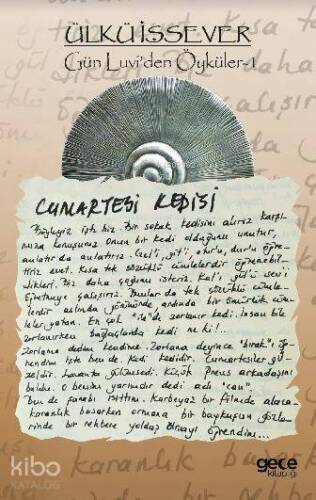 ÜLKÜ İSSEVER
Gün Luvi'den Öyküler-1
CUMARTESİ KEDİSİ
Böyleyiz işte biz. Bir sokak kedisini alırız karşı-
mıza konuşuruz. Onun bir kedi olduğunu unutur,
anlatır da anlatırız. Gel'i, git'i, otur'u, dur'u öğre-
tiriz evet. Kısa tek sözcüklü cümlelerdir öğrenebil-
dikleri. Biz daha çoğunu isteriz. Kal'ı, gül'ü, sev'i
öğretmeye çalışırız. Bunlar da tek sözcüklü cümle-
lerdir aslında görünürde ardında bir ömürlük cüm-
leler yatan. En çok "ile"de zorlanır kedi. İnsan bile
zorlanırken bağlaçlarda kedi ne ki!..
Zorlama dedim kendime. Zorlama deyince "bırak"ı öğ-
rendim işte ben de. Kedi kedidir. Cumartesiler gü-
zeldir. Lavanta gülümsedi. Küçük Prens arkadaşını
buldu. O benim yarımdır dedi adı "can".
Ben de fanabi
Karbeyaz bir filmde alaca-
karanlık basarken ormana bir baykuşun gözle-
rinde bir rehbere yoldaş olmayı öğrendim...
karanlık bas
gece
kitaplığı
kibo
KATALOG